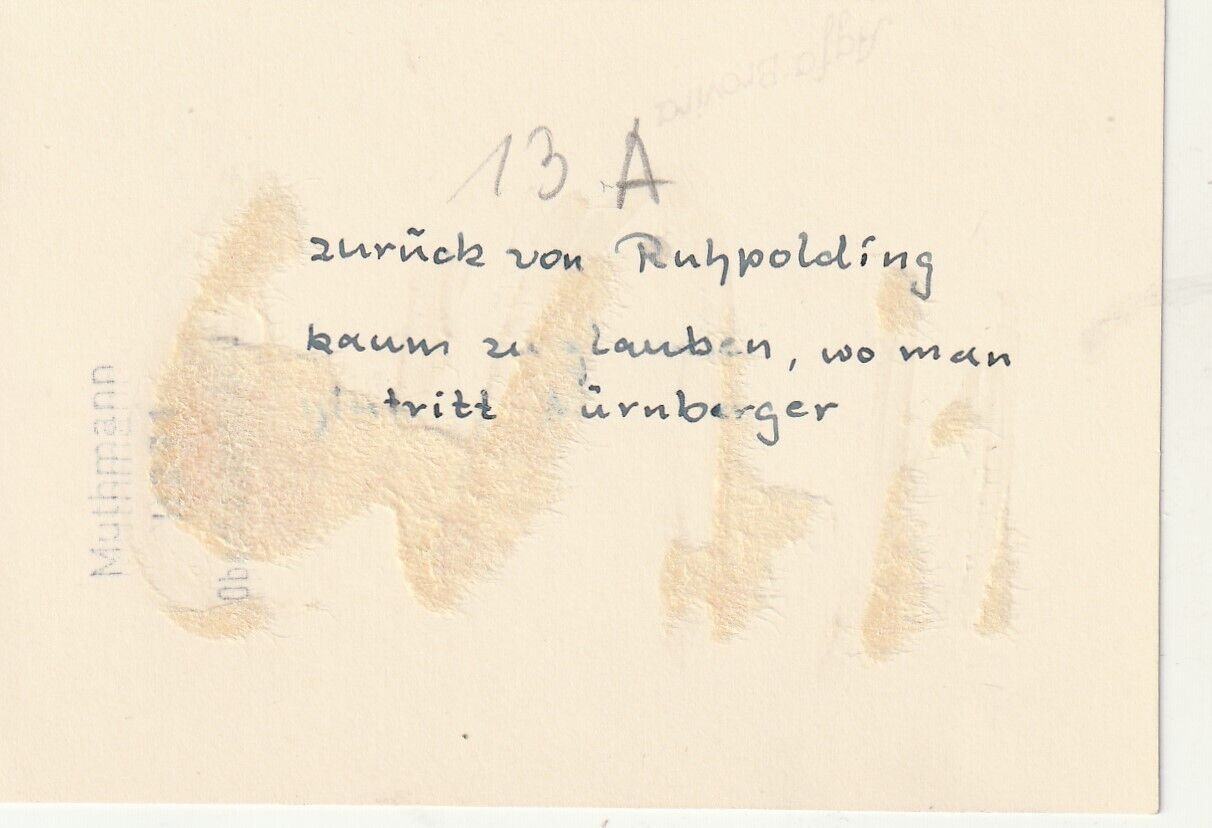 Agfa-Brovira
13 A
zurück von Ruhpolding
kaum zu glauben, wo man
tritt Nürnberger
Muthmann